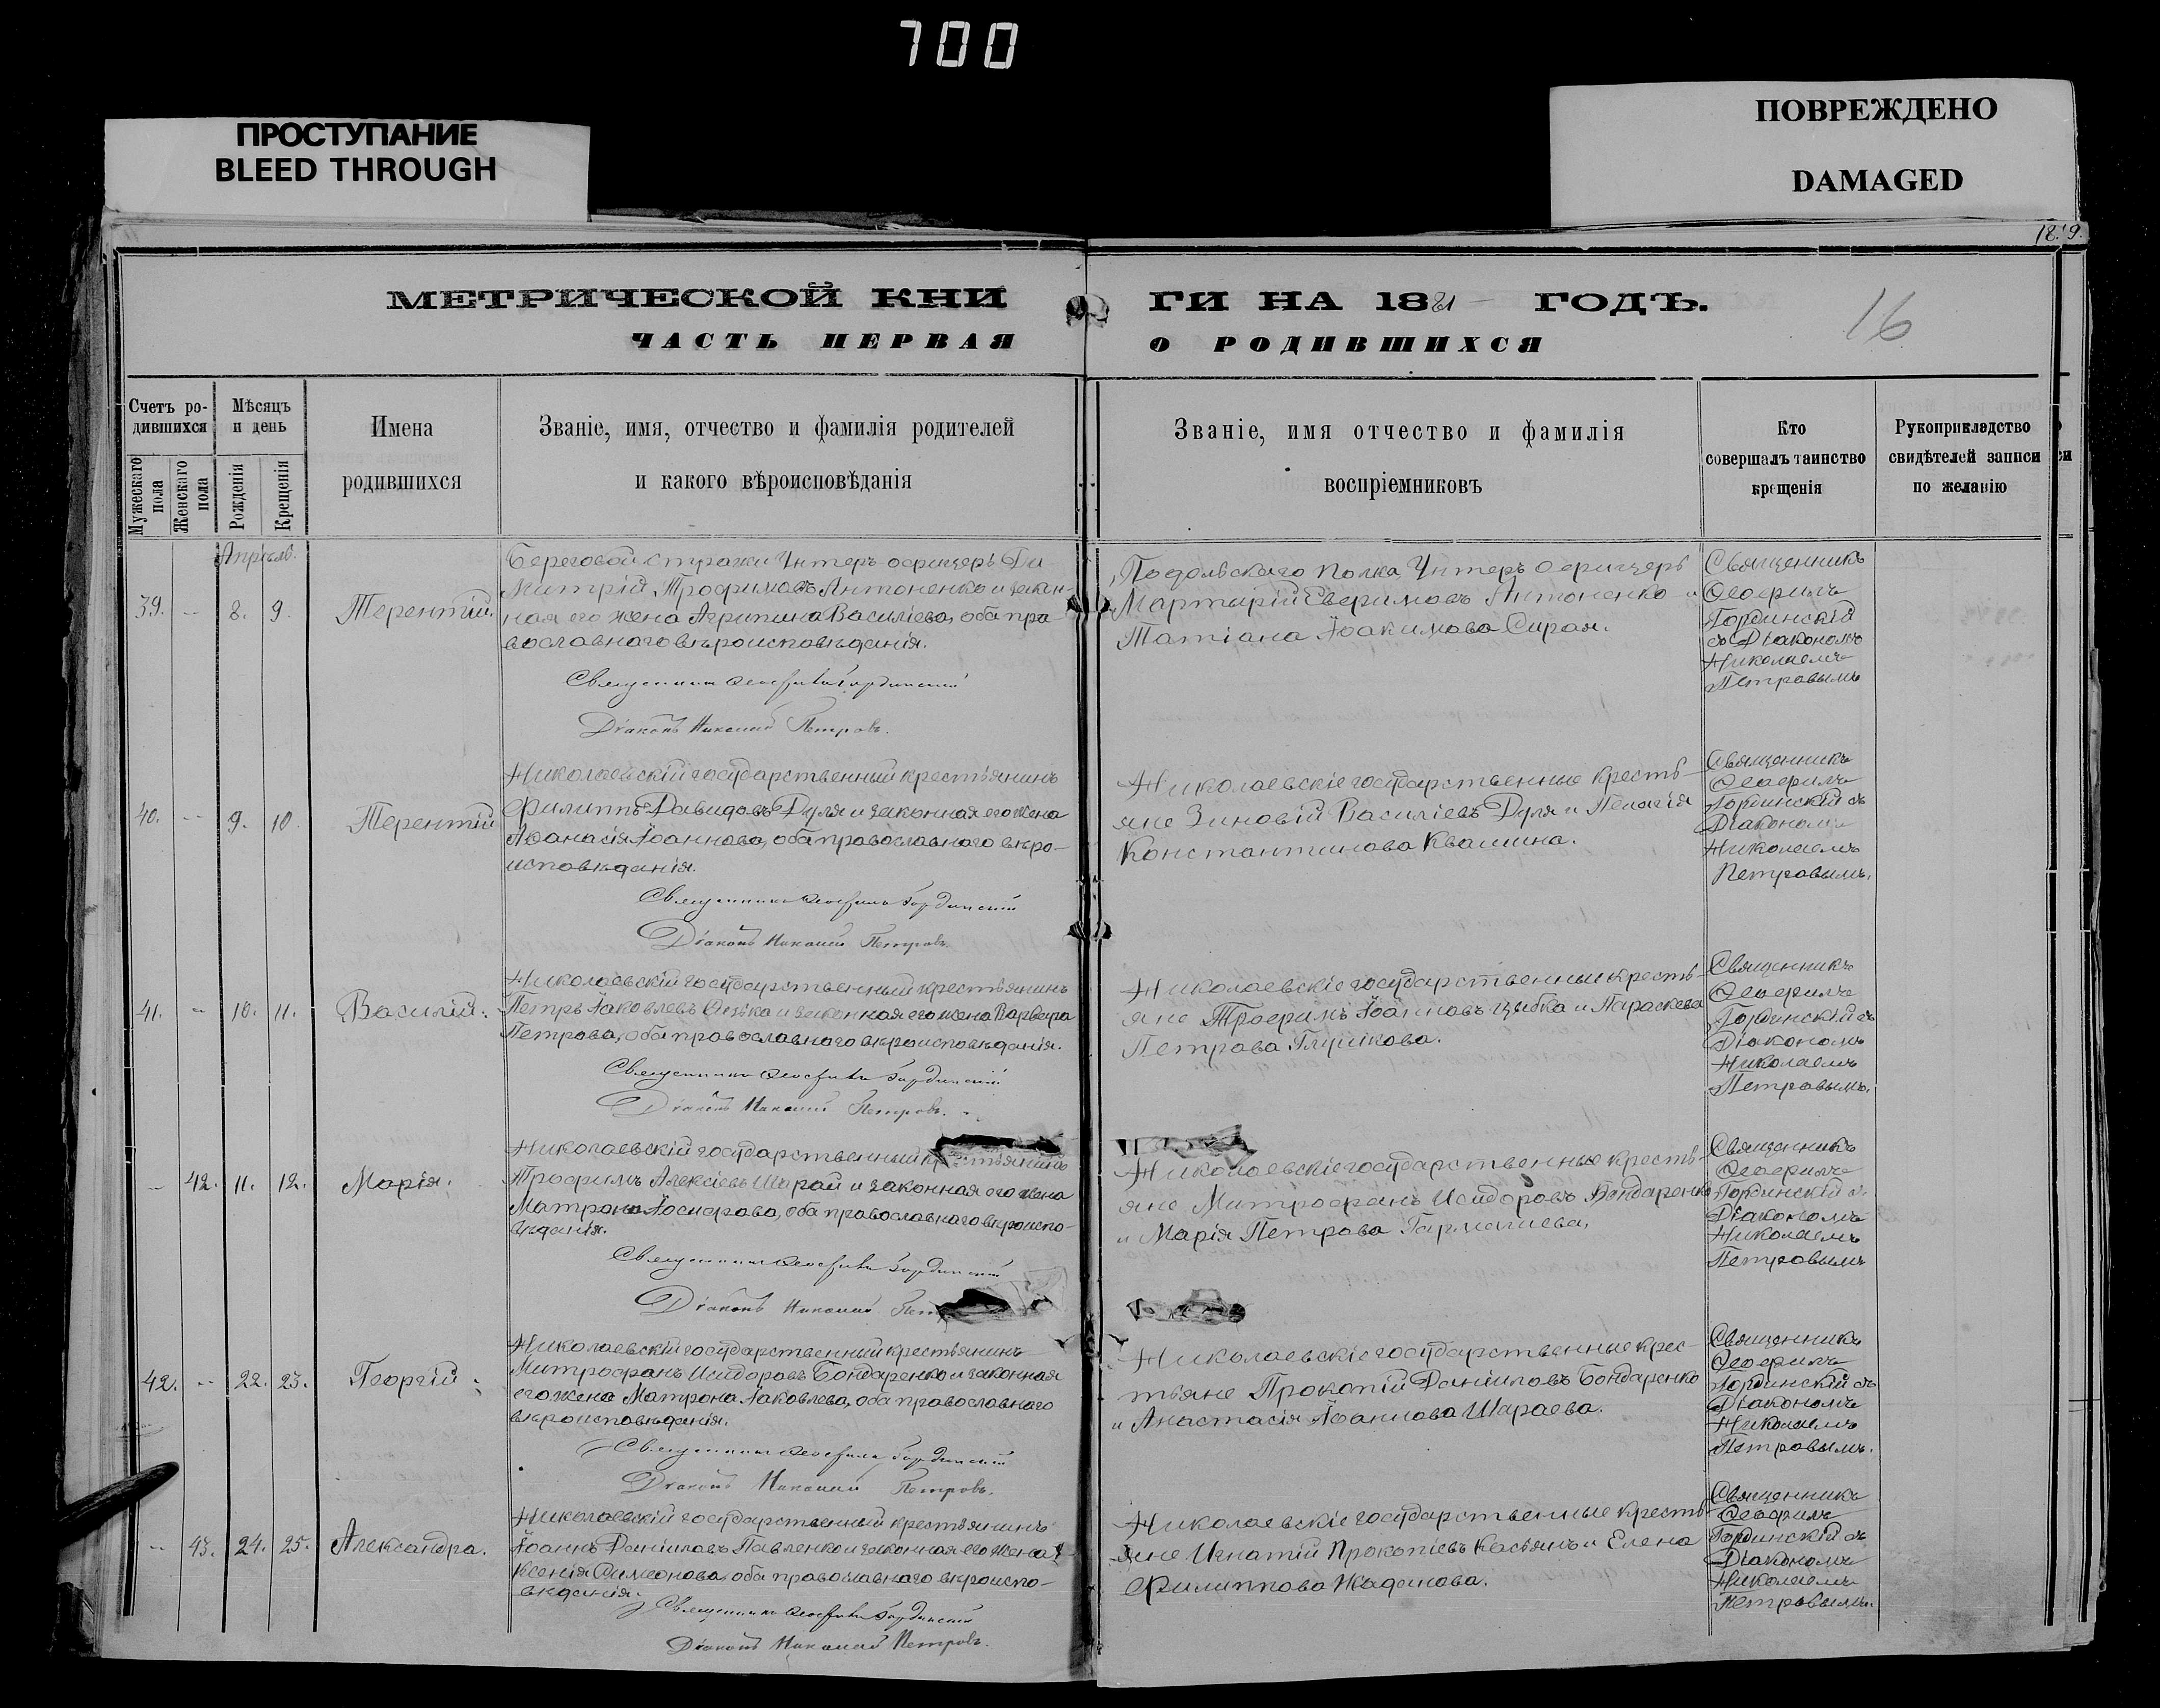 700
ПРОСТУПАНИЕ
BLEED THROUGH
ПОВРЕЖДЕНО
DAMAGED
МЕТРИЧЕСКОЙ КНИ
ГИ НА 1881 ГОДЪ.
16
ЧАСТЬ ПЕРВАЯ
О РОДИВШИХСЯ
Счетъ ро-
дившихся
Мужескаго пола
Женскаго пола
Мѣсяцъ
и день
Рожденія
Крещенія
Имена
родившихся
Званіе, имя, отчество и фамилія родителей
и какого вѣроисповѣданія
Званіе, имя отчество и фамилія
воспріемниковъ
Кто
совершалъ таинство
крещенія
Рукоприкладство
свидѣтелей записи
по желанію
Апрѣль.
39. -- 8. 9. Терентій.
Береговой стражи Унтеръ офицеръ Ди
митрій Трофимовъ Антоненко и закон-
ная его жена Агрипина Василіева, оба пра
вославнаго вѣроисповѣданія.
Священникъ Ѳеофилъ Гординскій
Діаконъ Николай Петровъ.
Подольскаго полка, Унтеръ офицеръ
Мартирій Евфимовъ Антоненко и
Татіана Іоакимова Сирая.
Священникъ
Ѳеофилъ
Гординскій
съ Діакономъ
Николаемъ
Петровымъ
40. -- 9. 10. Терентій
Николаевскій государственный крестьянинъ
Филиппъ Давидовъ Дуля и законная его жена
Аѳанасія Іоаннова, оба православнаго вѣро-
исповѣданія.
Священникъ Ѳеофилъ Гординскій
Діаконъ Николай Петровъ.
Николаевскіе государственные кресть-
яне Зиновій Василіевъ Дуля и Пелагія
Константинова Квашина.
Священникъ
Ѳеофилъ
Гординскій съ
Діакономъ
Николаемъ
Петровымъ.
41. -- 10. 11. Василій.
Николаевскій государственный крестьянинъ
Петръ Іаковлевъ и законная его жена Варвара
Петрова, оба православнаго вѣроисповѣданія.
Священникъ Ѳеофилъ Гординскій
Діаконъ Николай Петровъ.
Николаевскіе государственные кресть-
яне Трофимъ Іоанновъ Цыбка и Параскева
Петрова Глушкова.
Священникъ
Ѳеофилъ
Гординскій съ
Діакономъ
Николаемъ
Петровымъ.
-- 42. 11. 12. Марія.
Николаевскій государственный крестьянинъ
Трофимъ Алексіевъ Шарай и законная его жена
Матрона Іосифова, оба православнаго вѣроиспо-
вѣданія.
Священникъ Ѳеофилъ Гординскій
Діаконъ Николай
Николаевскіе государственные кресть-
яне Митрофанъ Исидоровъ Бондаренко
и Марія Петрова
Священникъ
Ѳеофилъ
Гординскій съ
Діакономъ
Николаемъ
Петровымъ
42. -- 22. 23. Георгій.
Николаевскій государственный крестьянинъ
Митрофанъ Исидоровъ Бондаренко и законная
его жена Матрона Іаковлева, оба православнаго
вѣроисповѣданія.
Священникъ Ѳеофилъ Гординскій
Діаконъ Николай Петровъ.
Николаевскіе государственные крес-
тьяне Прокопій Даніиловъ Бондаренко
и Анастасія Іоаннова Шараева.
Священникъ
Ѳеофилъ
Гординскій съ
Діакономъ
Николаемъ
Петровымъ.
-- 43. 24. 25. Александра.
Николаевскій государственный крестьянинъ
Іоаннъ Даніиловъ Павленко и законная его жена
Ксенія Симеонова, оба православнаго вѣроиспо-
вѣданія.
Священникъ Ѳеофилъ Гординскій
Діаконъ Николай Петровъ.
Николаевскіе государственные кресть-
яне Игнатій Прокопіевъ Касьянъ и Елена
Филиппова Жаданова.
Священникъ
Ѳеофилъ
Гординскій съ
Діакономъ
Николаемъ
Петровымъ.